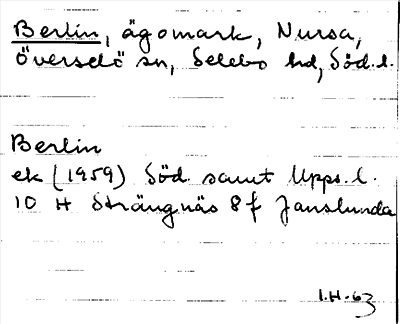 Berlin, ägomark, Nursa,
Överselö sn, Selebo hd, Söd. l.
Berlin
ek (1959) Söd. samt Upps. l.
10 H Strängnäs 8 f Janslunda
I.H-63